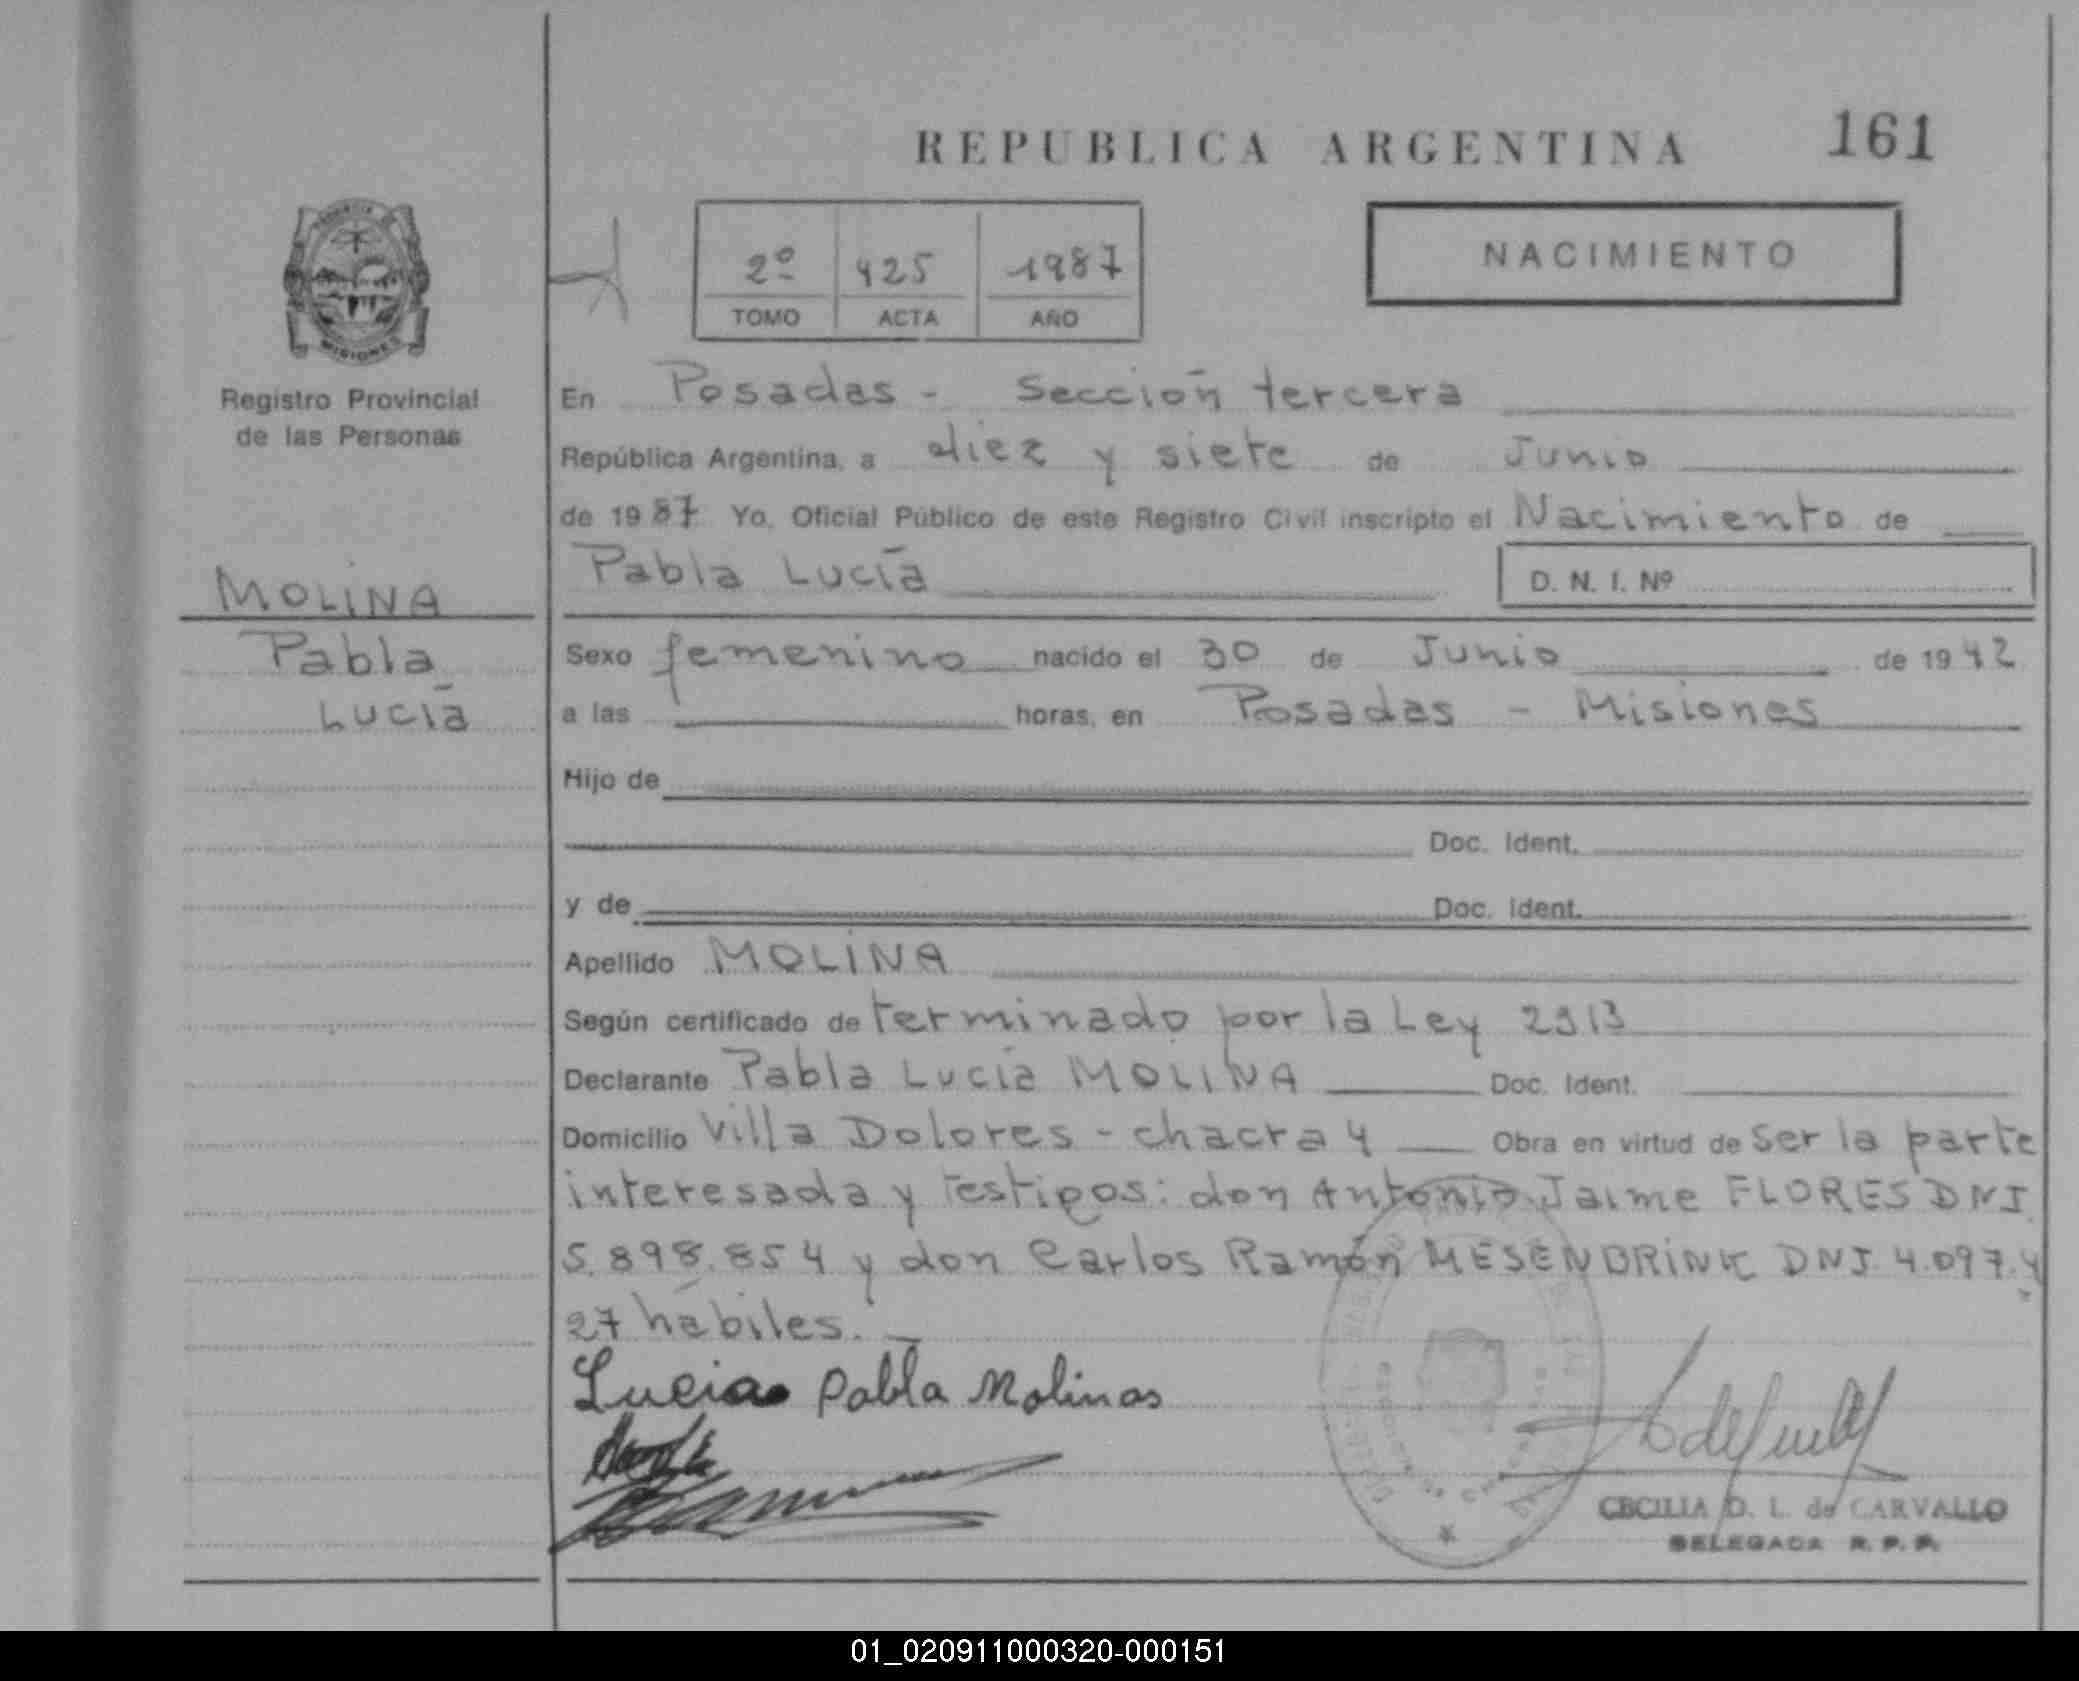 REPUBLICA ARGENTINA 161
2º 425 1987
TOMO ACTA AÑO
NACIMIENTO
PROVINCIA DE
MISIONES
Registro Provincial
de las Personas
MOLINA
Pabla
Lucía
En Posadas - Sección tercera
República Argentina, a diez y siete de Junio
de 1987 Yo, Oficial Público de este Registro Civil inscripto el Nacimiento de
Pabla Lucía D. N. I. Nº
Sexo femenino nacido el 30 de Junio de 1942
a las horas, en Posadas - Misiones
Hijo de
Doc. Ident.
y de Doc. Ident.
Apellido MOLINA
Según certificado de terminado por la Ley 2913
Declarante Pabla Lucía MOLINA Doc. Ident.
Domicilio Villa Dolores - chacra 4 Obra en virtud de ser la parte
interesada y testigos: don Antonio Jaime FLORES DNI
5.898.854 y don Carlos Ramón MESENBRINK DNI. 4.097.4
27 hábiles.
Lucia Pabla Molinas
CECILIA D. L. de CARVALLO
DELEGADA R. P. P.
01_020911000320-000151